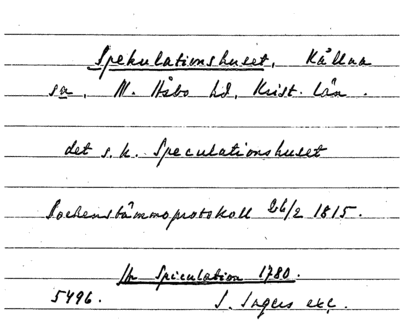 Spekulationshuset, Källna
sn, N. Åsbo hd, Krist. län.
det s.k. Speculationshuset
Sockenstämmoprotokoll 26/2 1815.
Speculation 1780.
5496. S. exc.